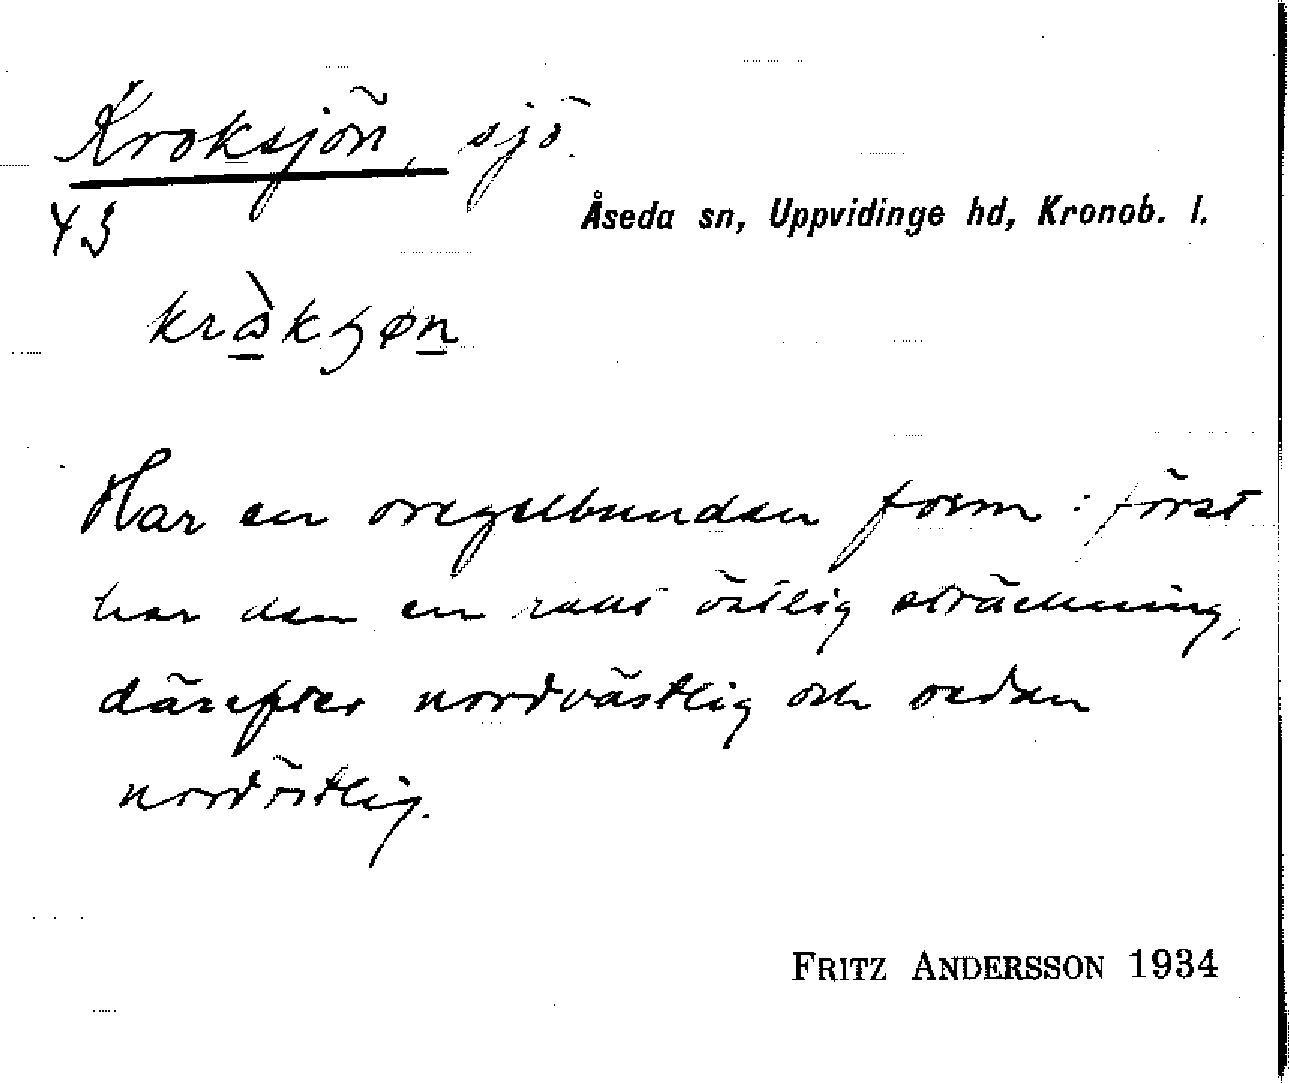 Kroksjön, sjö.
Åseda sn, Uppvidinge hd, Kronob. l.
43
Har en oregelbunden form: först
har den en rakt östlig sträckning,
därefter nordvästlig och sedan
nordöstlig.
FRITZ ANDERSSON 1934